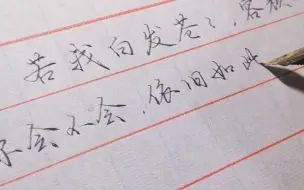 若我白发苍々，容颜
你会不会，依旧如此